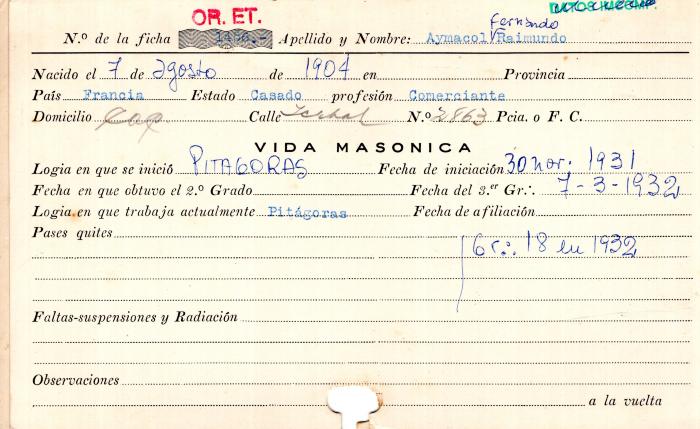 OR. ET.
Fernando
N.º de la ficha 1486.- Apellido y Nombre: Aymacol Raimundo
Nacido el 7 de agosto de 1904 en Provincia
País Francia Estado Casado profesión Comerciante
Domicilio Cap Calle N.º 2863 Pcia. o F. C.
VIDA MASONICA
Logia en que se inició PITAGORAS Fecha de iniciación 30 nov. 1931
Fecha en que obtuvo el 2.º Grado Fecha del 3.er Gr∴ 7-3-1932
Logia en que trabaja actualmente Pitágoras Fecha de afiliación
Pases quites
Gr∴ 18 en 1932
Faltas-suspensiones y Radiación
Observaciones
a la vuelta